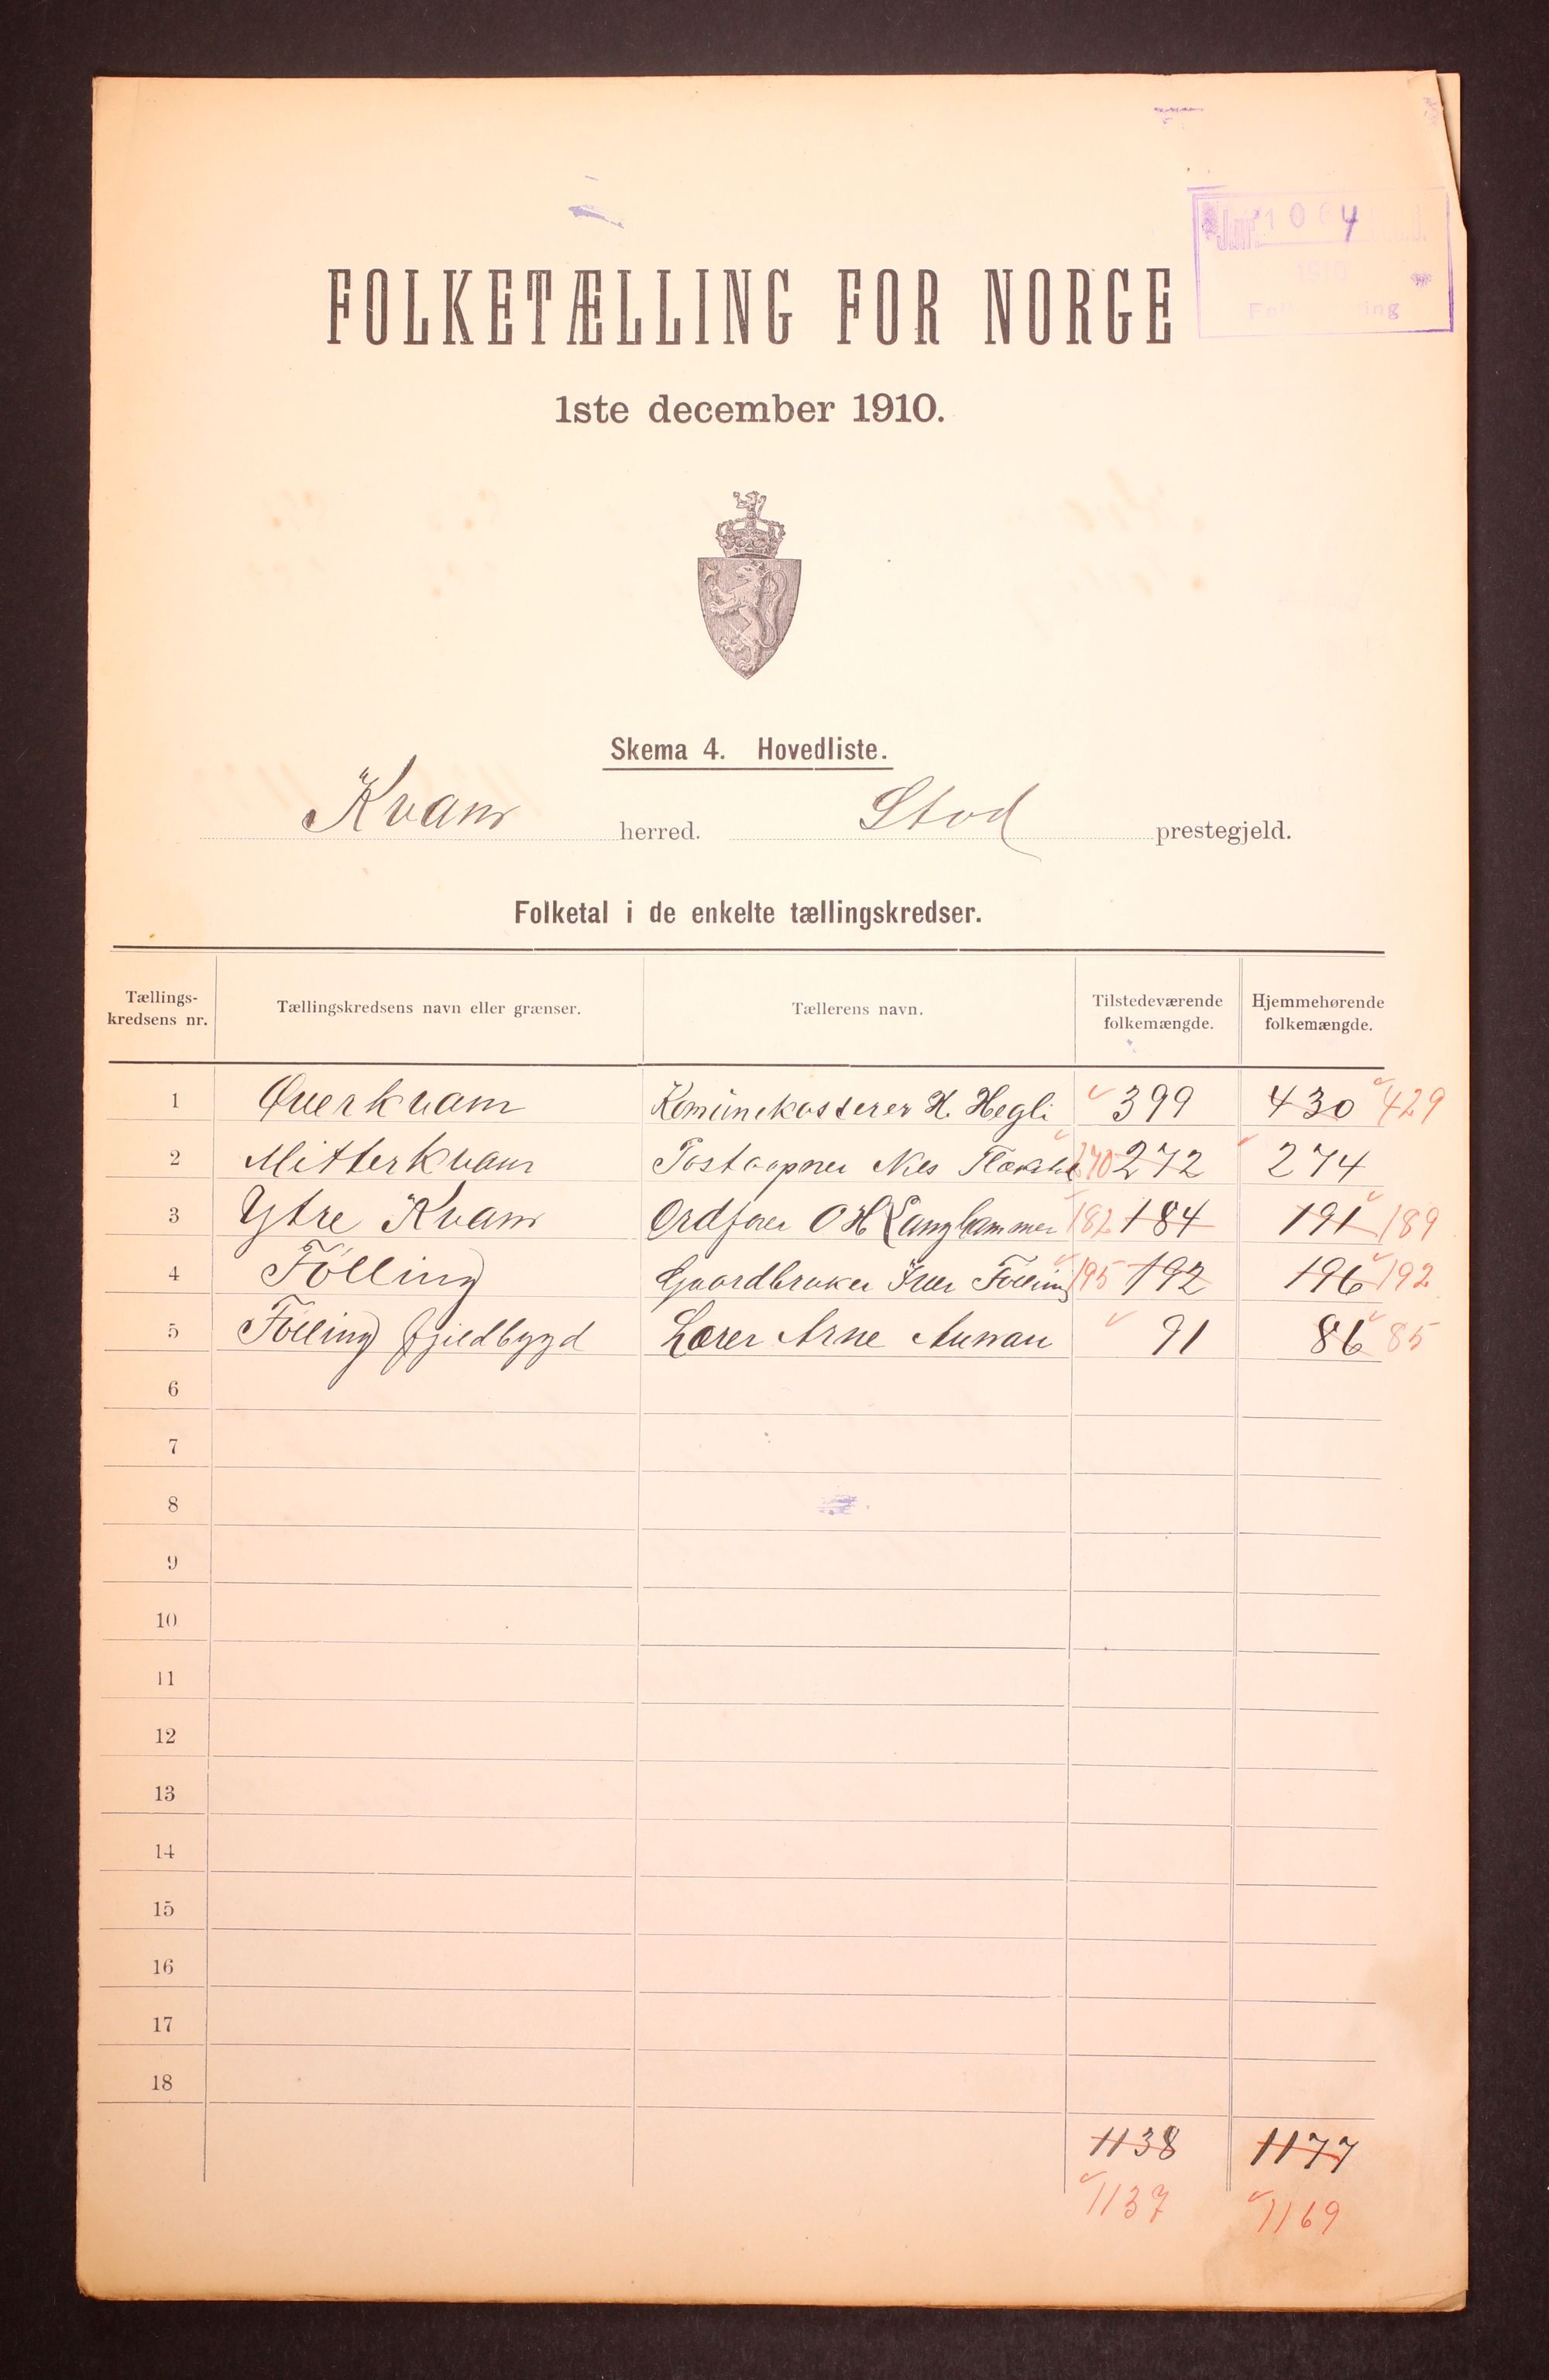 J.nr. 1064
1910
Folketælling
FOLKETÆLLING FOR NORGE
1ste december 1910.
Skema 4. Hovedliste.
Kvam herred. Stod prestegjeld.
Folketal i de enkelte tællingskredser.
Tællings-kredsens nr. Tællingskredsens navn eller grænser. Tællerens navn. Tilstedeværende folkemængde. Hjemmehørende folkemængde.
1 Överkvam Komunekasserer H. Hegli 399 430 429
2 Mitterkvam Postaapner Nils 270 272 274
3 Ytre Kvam Ordfører O H Langhammer 182 184 191 189
4 Følling Gaardbruker Iver Følling 195 192 196 192
5 Følling fjeldbygd Lærer Arne Aunan 91 86 85
6
7
8
9
10
11
12
13
14
15
16
17
18
1138 1177
1137 1169